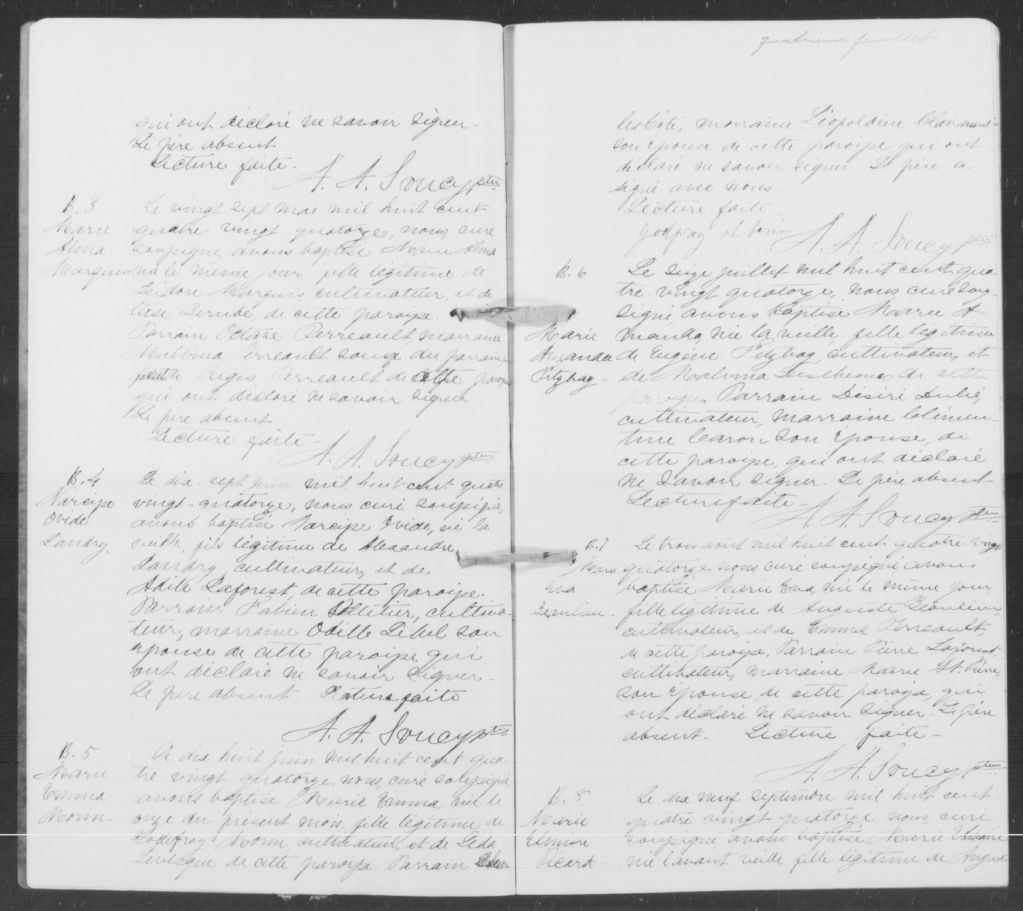 qui ont déclaré ne savoir signer.
Le père absent
Lecture faite.
A. A. Soucy ptre
B. 3
Marie
Alma
Marquis
Le vingt sept mai mil huit cent
quatre-vingt quatorze, nous curé
soussigné, avons baptisé Marie Alma
née le même jour fille légitime de
Isidore Marquis cultivateur, et de
de cette paroisse.
Parrain Octave Perreault, marraine
Malvina Perreault soeur du parrain
Régis Perreault de cette paroisse
qui ont déclaré ne savoir signer.
Le père absent
Lecture faite.
A. A. Soucy ptre
B. 4
Narcisse
Ovide
Landry
Le dix-sept juin mil huit cent quatre
vingt-quatorze, nous curé soussigné,
avons baptisé Narcisse Ovide, né la
veille, fils légitime de Alexandre
Landry, cultivateur, et de
Adèle Laforest, de cette paroisse.
Parrain Fabien Pelletier, cultiva-
teur, marraine Odille Lebel son
épouse de cette paroisse qui
ont déclaré ne savoir signer.
Le père absent. Lecture faite
A. A. Soucy ptre
B. 5
Marie
Emma
Morin
Le dix huit juin mil huit cent qua-
tre vingt quatorze, nous curé soussigné,
avons baptisé Marie Emma, née le
onze du présent mois, fille légitime de
Godefroy Morin, cultivateur, et de Léda
Levesque de cette paroisse. Parrain
quatrième feuillet
marraine Léopoldine Clairmont
son épouse de cette paroisse qui ont
déclaré ne savoir signer. Le père a
signé avec nous.
Lecture faite
Godfroy Morin
A. A. Soucy ptre
B. 6
Marie
Amanda
Fitzbag
Le seize juillet mil huit cent qua-
tre-vingt quatorze, nous curé sous-
signé avons baptisé Marie A-
manda née la veille, fille légitime
de Eugène Fitzbag cultivateur, et
de Malvina Deschenes de cette
paroisse Parrain Désiré Dubé,
cultivateur, marraine Clémen-
tine Caron son épouse, de
cette paroisse, qui ont déclaré
ne savoir signer. Le père absent
Lecture faite
A. A. Soucy ptre
B. 7
Marie
Eva
Beaulieu
Le trois août mil huit cent quatre vingt
quatorze, nous curé soussigné avons
baptisé Marie Eva née le même jour,
fille légitime de Auguste Beaulieu
cultivateur, et de Emma Perreault,
de cette paroisse. Parrain Pierre Laforest
cultivateur, marraine Marie St. Pierre,
son épouse de cette paroisse, qui
ont déclaré ne savoir signer. Le père
absent. Lecture faite.
A. A. Soucy ptre
B. 8
Marie
Picard
Le dix neuf septembre mil huit cent
quatre vingt quatorze, nous curé
soussigné avons baptisé Marie
née l'avant veille fille légitime de